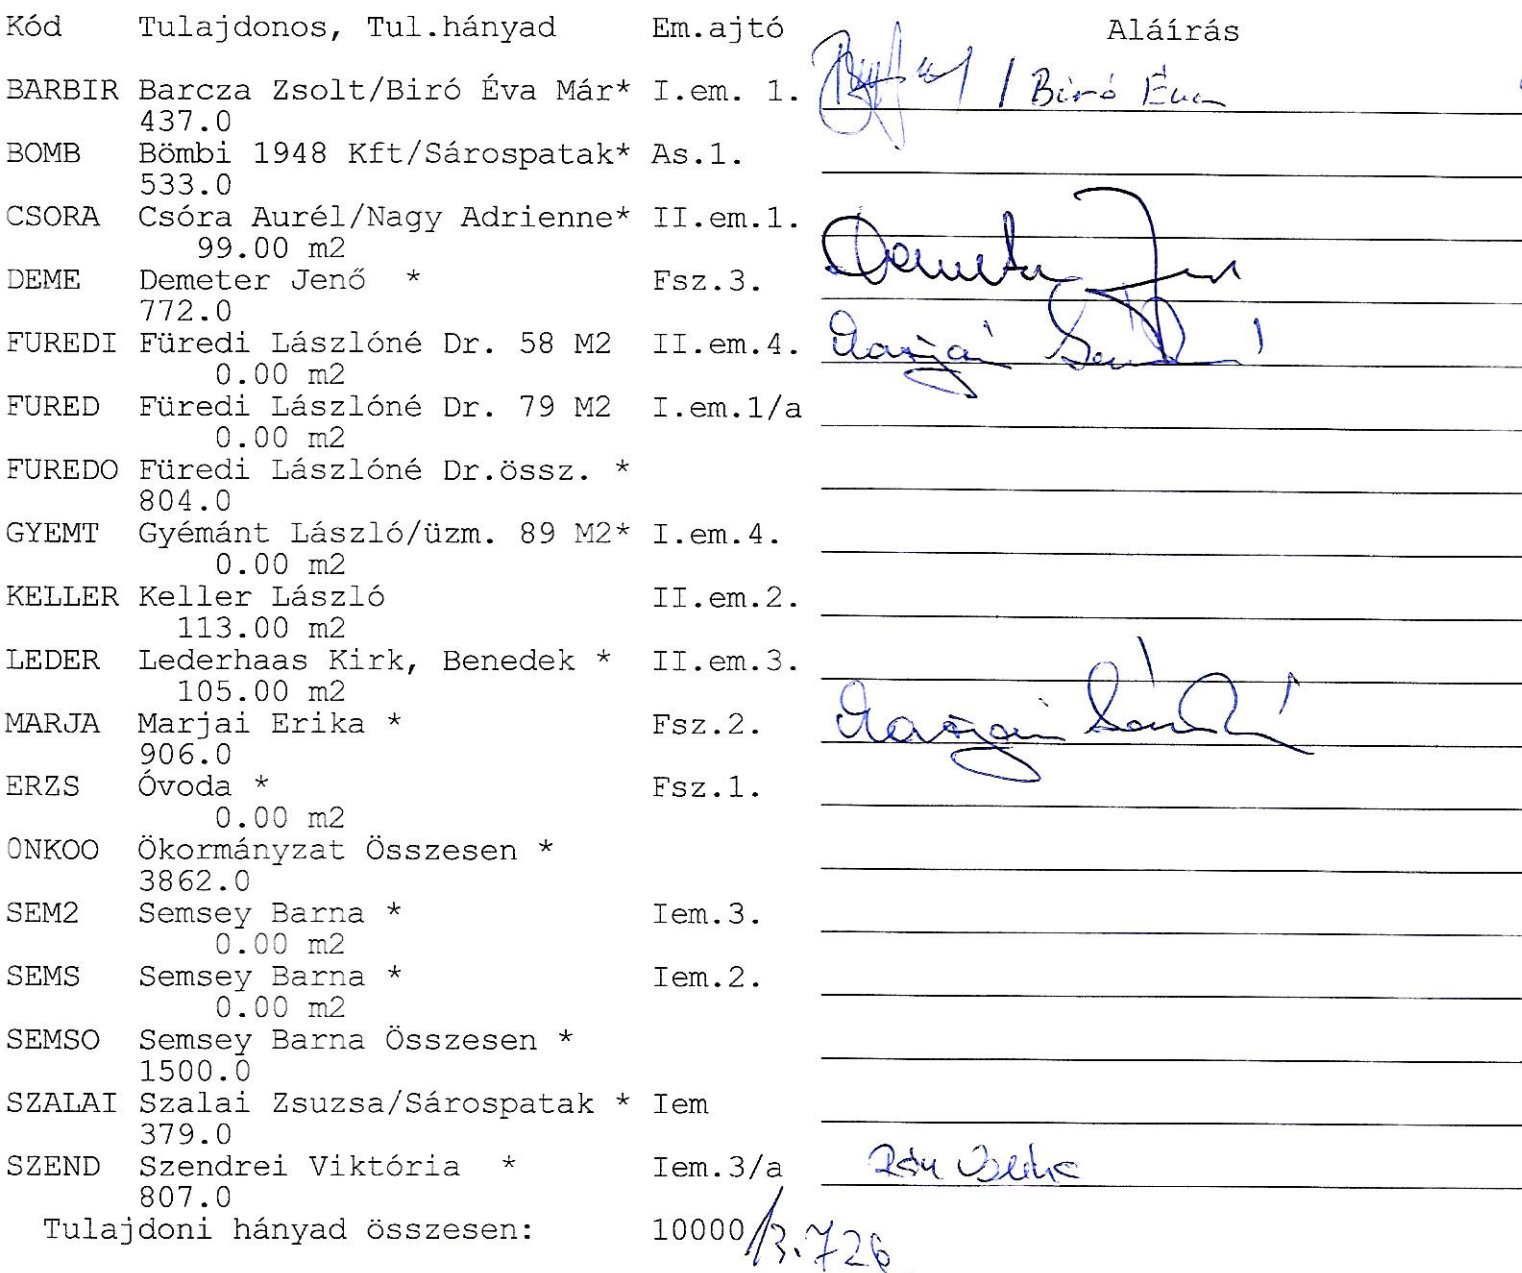 Kód Tulajdonos, Tul.hányad Em.ajtó Aláírás
BARBIR Barcza Zsolt/Biró Éva Már* I.em. 1. / Biró Éva
437.0
BOMB Bömbi 1948 Kft/Sárospatak* As.1.
533.0
CSORA Csóra Aurél/Nagy Adrienne* II.em.1.
99.00 m2
DEME Demeter Jenő * Fsz.3. Demeter Jenő
772.0
FUREDI Füredi Lászlóné Dr. 58 M2 II.em.4. Marjai
0.00 m2
FURED Füredi Lászlóné Dr. 79 M2 I.em.1/a
0.00 m2
FUREDO Füredi Lászlóné Dr.össz. *
804.0
GYEMT Gyémánt László/üzm. 89 M2* I.em.4.
0.00 m2
KELLER Keller László II.em.2.
113.00 m2
LEDER Lederhaas Kirk, Benedek * II.em.3.
105.00 m2
MARJA Marjai Erika * Fsz.2. Marjai
906.0
ERZS Óvoda * Fsz.1.
0.00 m2
ONKOO Ökormányzat Összesen *
3862.0
SEM2 Semsey Barna * Iem.3.
0.00 m2
SEMS Semsey Barna * Iem.2.
0.00 m2
SEMSO Semsey Barna Összesen *
1500.0
SZALAI Szalai Zsuzsa/Sárospatak * Iem
379.0
SZEND Szendrei Viktória * Iem.3/a
807.0
Tulajdoni hányad összesen: 10000/3.726